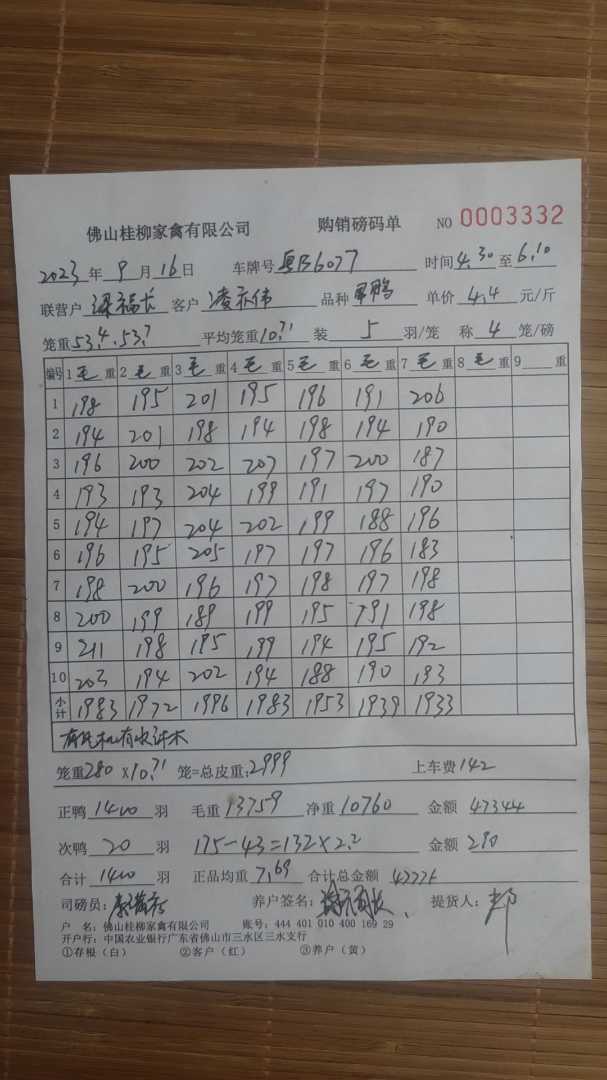 佛山桂柳家禽有限公司 购销磅码单 NO 0003332
2023 年 9 月 16 日 车牌号 粤B6077 时间 4.30 至 6.10
联营户 客户 凌亦伟 品种 单价 4.4 元/斤
笼重 53.4.53.7 平均笼重 10.71 装 5 羽/笼 称 4 笼/磅
编号 1 毛 重 2 毛 重 3 毛 重 4 毛 重 5 毛 重 6 毛 重 7 毛 重 8 毛 重 9 重
1 198 195 201 195 196 191 206
2 194 201 198 194 198 194 190
3 196 200 202 207 197 200 187
4 193 193 204 199 191 197 190
5 194 197 204 202 199 188 196
6 196 195 205 197 197 196 183
7 198 200 196 197 198 197 198
8 200 199 189 199 195 191 198
9 211 198 195 199 194 195 192
10 203 194 202 194 188 190 193
小计 1983 1972 1996 1983 1953 1939 1933
笼重 280 X10.71 笼=总皮重: 2999 上车费 142
正鸭 1400 羽 毛重 13759 净重 10760 金额 47344
次鸭 20 羽 175-43=132X2.2 金额 290
合计 羽 正品均重 7.69 合计总金额
司磅员: 养户签名: 提货人:
户 名: 佛山桂柳家禽有限公司 账号: 444 401 010 400 169 29
开户行: 中国农业银行广东省佛山市三水区三水支行
①存根(白) ②客户(红) ③养户(黄)